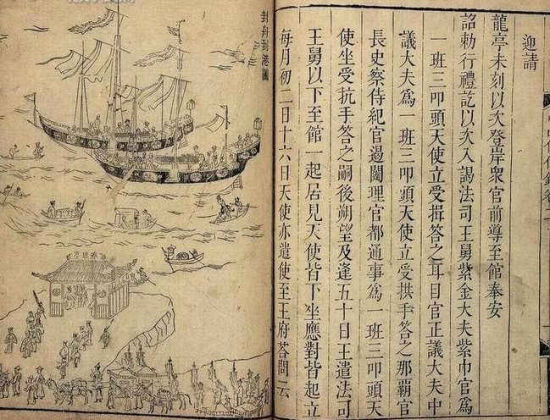 迎請
龍亭未刻以次登岸衆官前導至館奉安
詔勅行禮訖以次入謁法司王舅紫金大夫紫巾官爲
一班三叩頭天使立受揖答之耳目官正議大夫中
議大夫爲一班三叩頭天使立受拱手答之那霸官
長史察侍紀官遏闥理官都通事爲一班三叩頭天
使坐受抗手答之嗣後朔望及逢五十日王遣法司
王舅以下至館一起居見天使皆下坐應對皆起立
每月初二日十六日天使亦遣使至王府答問云
封舟到港圖